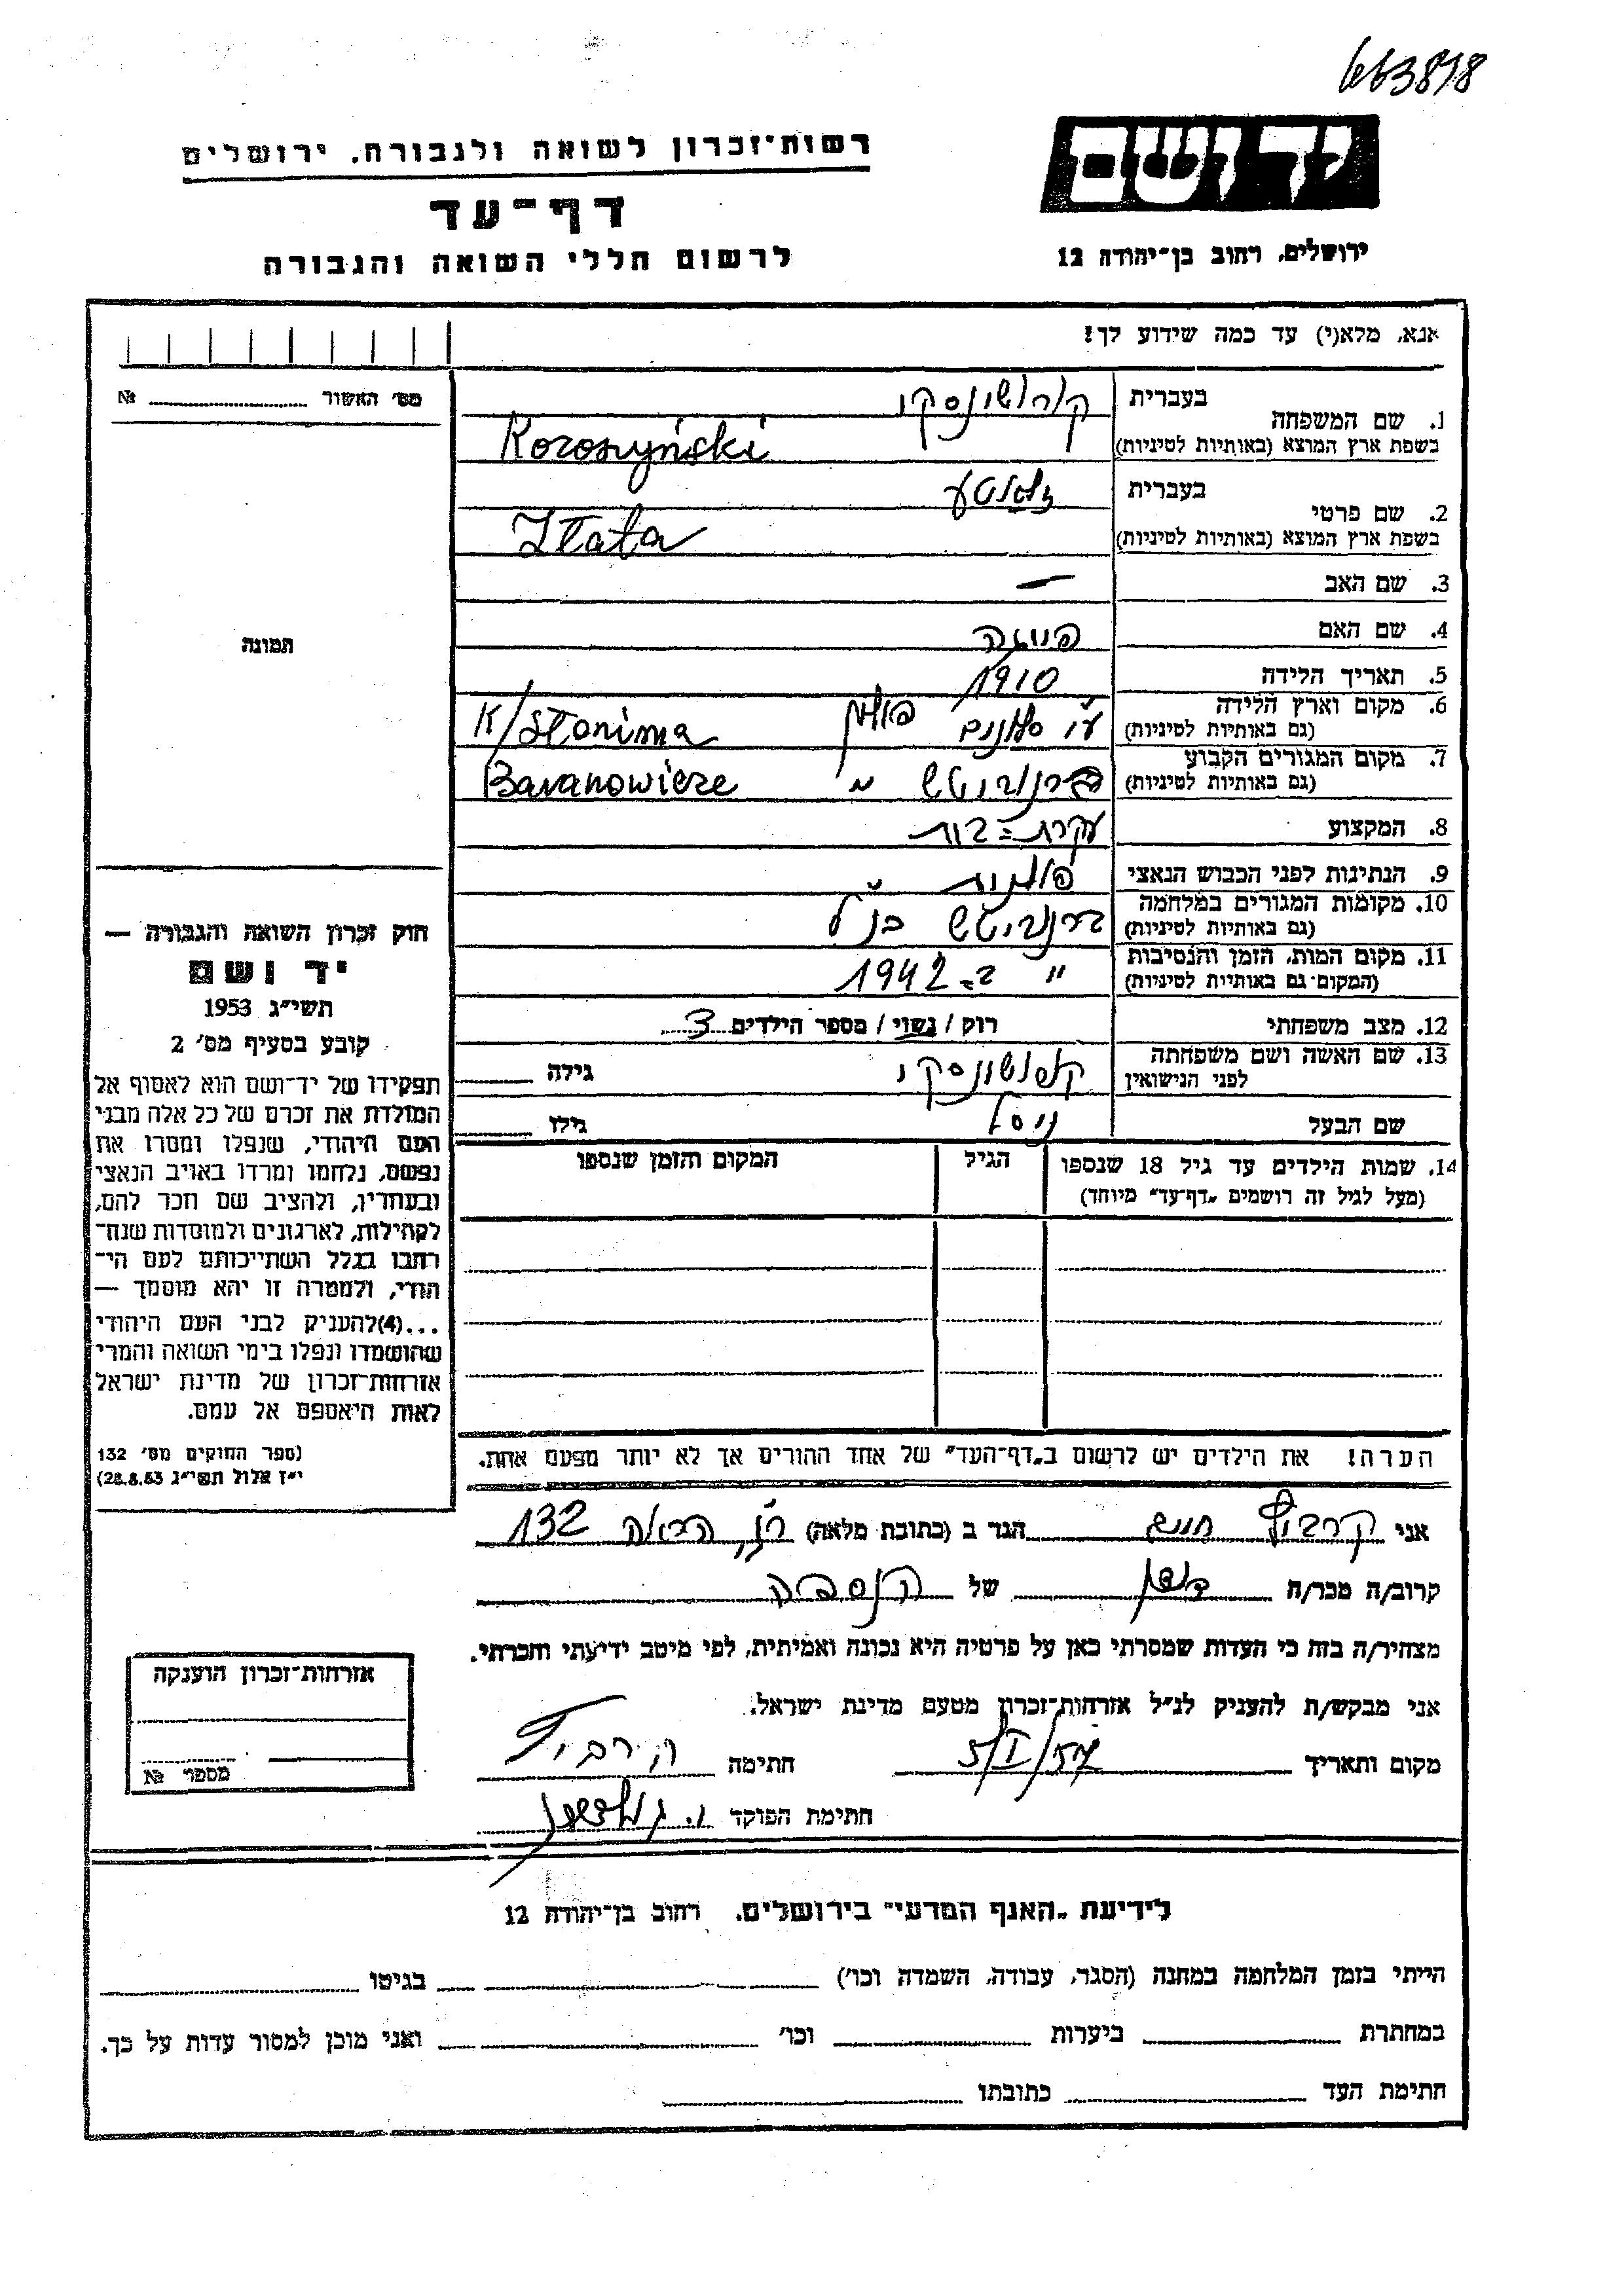 663818
רשות־זכרון לשואה ולגבורה, ירושלים
יד ושם
דף־עד
לרשום חללי השואה והגבורה
ירושלים, רחוב בן־יהודה 12
אנא, מלא(י) עד כמה שידוע לך!
מס' האשור № 
1. שם המשפחה
בעברית
בשפת ארץ המוצא (באותיות לטיניות) Koroszyński
2. שם פרטי
בעברית זלאטע
בשפת ארץ המוצא (באותיות לטיניות) Złata
3. שם האב —
4. שם האם
5. תאריך הלידה 1910
6. מקום וארץ הלידה
(גם באותיות לטיניות) ע"י סלונים פולין K/Słonima
7. מקום המגורים הקבוע
(גם באותיות לטיניות) ברנוביטש Baranowicze
8. המקצוע עקרת=בית
9. הנתינות לפני הכבוש הנאצי פולנית
10. מקומות המגורים במלחמה
(גם באותיות לטיניות) ברנוביטש כנ"ל
11. מקום המות, הזמן והנסיבות
(המקום גם באותיות לטיניות) " ב=1942
12. מצב משפחתי רוק / נשוי / מספר הילדים 3
13. שם האשה ושם משפחתה
לפני הנישואין גילה
שם הבעל ניסל גילו
14. שמות הילדים עד גיל 18 שנספו
(מעל לגיל זה רושמים „דף־עד" מיוחד)
הגיל
המקום והזמן שנספו
הערה! את הילדים יש לרשום ב„דף־העד" של אחד ההורים אך לא יותר מפעם אחת.
תמונה
חוק זכרון השואה והגבורה —
יד ושם
תשי"ג 1953
קובע בסעיף מס' 2
תפקידו של יד־ושם הוא לאסוף אל
המולדת את זכרם של כל אלה מבני
העם היהודי, שנפלו ומסרו את
נפשם, נלחמו ומרדו באויב הנאצי
ובעוזריו, ולהציב שם וזכר להם,
לקהילות, לארגונים ולמוסדות שנח־
רבו בגלל השתייכותם לעם הי־
הודי, ולמטרה זו יהא מוסמך —
...(4)להעניק לבני העם היהודי
שהושמדו ונפלו בימי השואה והמרי
אזרחות־זכרון של מדינת ישראל
לאות היאספם אל עמם.
(ספר החוקים מס' 132
י"ז אלול תשי"ג 28.8.53)
אני חיים הגר ב (כתובת מלאה) 132
קרוב/ה מכר/ה של
מצהיר/ה בזה כי העדות שמסרתי כאן על פרטיה היא נכונה ואמיתית, לפי מיטב ידיעתי והכרתי.
אני מבקש/ת להעניק לנ"ל אזרחות־זכרון מטעם מדינת ישראל.
מקום ותאריך חתימה
חתימת הפוקד
אזרחות־זכרון הוענקה
מספר №
לידיעת „האנף המדעי" בירושלים, רחוב בן־יהודה 12
הייתי בזמן המלחמה במחנה (הסגר, עבודה, השמדה וכו') בגיטו
במחתרת ביערות וכו' ואני מוכן למסור עדות על כך.
חתימת העד כתובתו